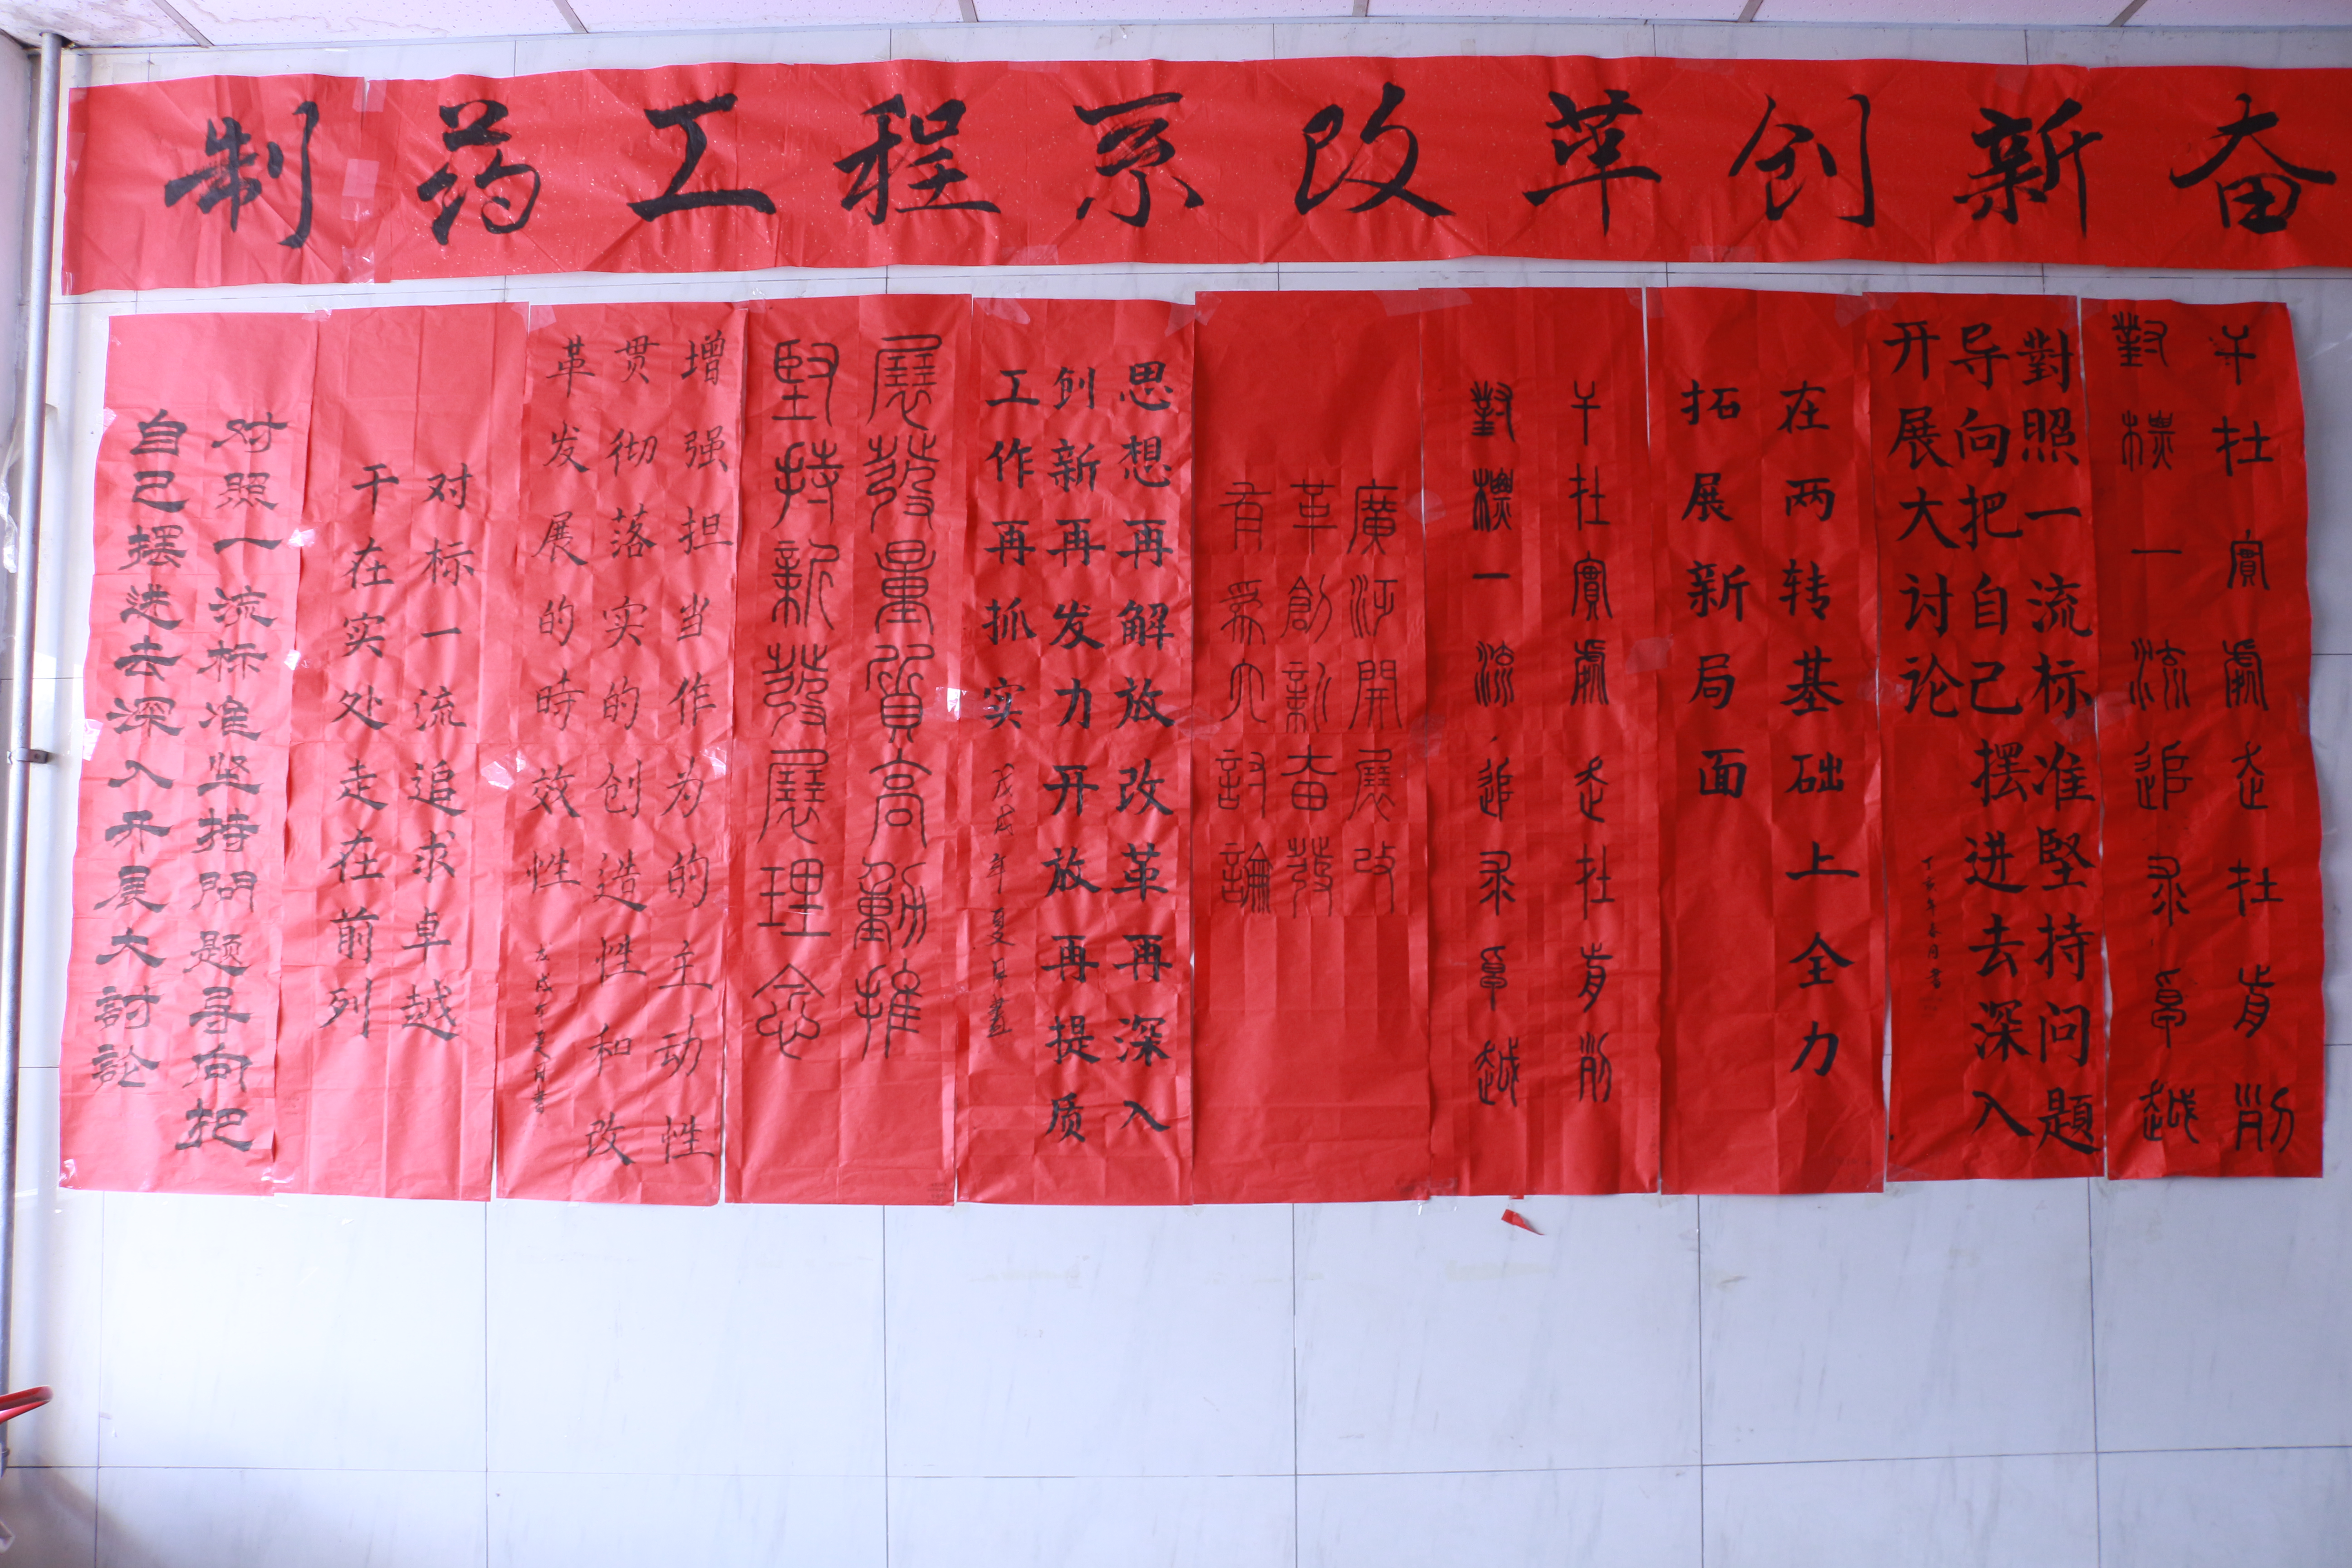 制药工程系改革创新奋
干在實處走在前列
對標一流追求卓越
對照一流标准堅持问题
导向把自己摆进去深入
开展大讨论
在两转基础上全力
拓展新局面
干在實處走在前列
對標一流追求卓越
廣泛開展改
革創新奋發
有為大討論
思想再解放改革再深入
创新再发力开放再提质
工作再抓实
戊戌年夏月書
展發量質高動推
堅持新發展理念
增强担当作为的主动性
贯彻落实的创造性和改
革发展的時效性
戊戌年夏月書
对标一流追求卓越
干在实处走在前列
对照一流标准坚持問题导向把
自己摆进去深入开展大討論